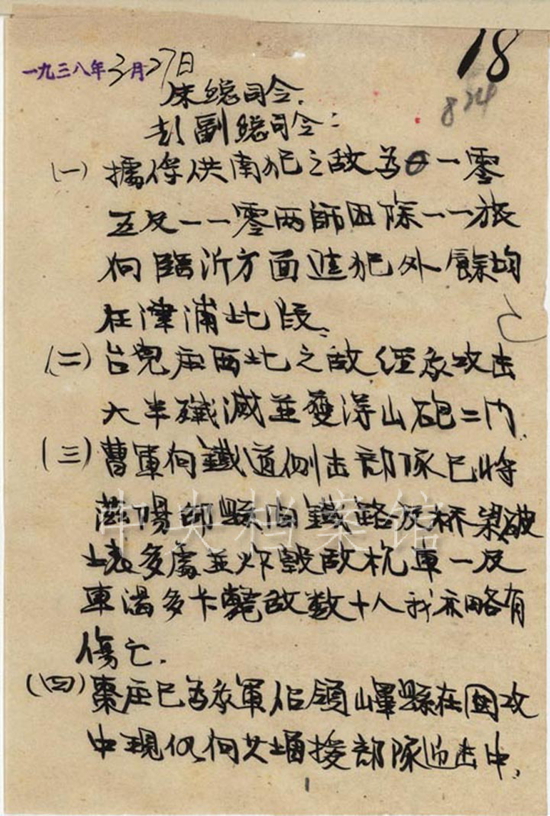 18
824
一九三八年3月27日
朱總司令.
彭副總司令：
(一) 據俘供南犯之敵為一零
五及一一零兩師團除一一旅
向臨沂方面進犯外餘均
在津浦北段、
(二) 台兒庄西北之敵經我攻击
大半殲滅並獲得山砲二门
(三) 曹軍向鐵道側击部隊已將
滋陽鄒縣间鐵路及桥梁破
壞多處並炸毀敵机車一及
車多卡斃敵数十人我亦略有
傷亡.
(四) 棗庄已為我軍佔領嶧縣在圍攻
中現仍向其增援部隊迫击中.
中央档案馆